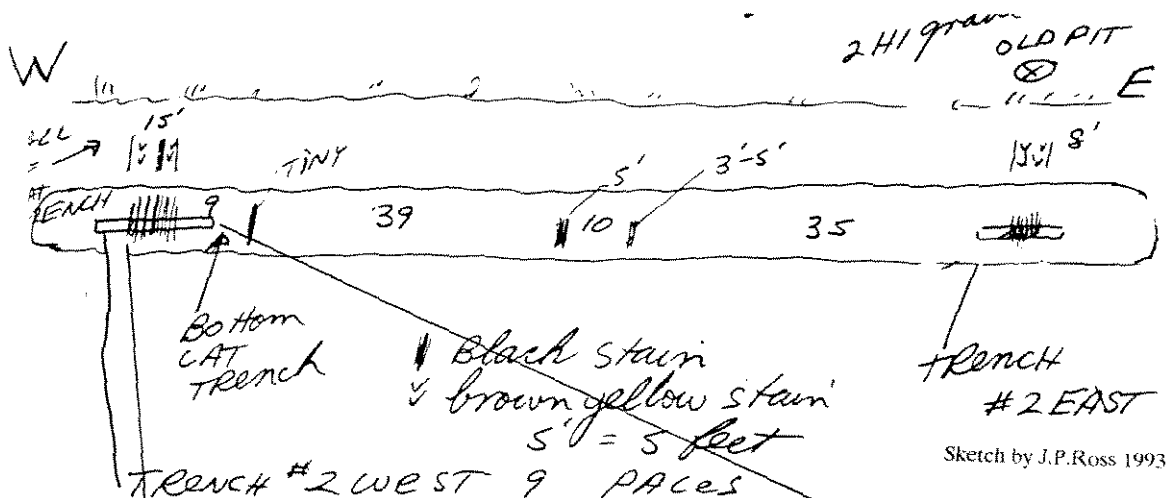 W
OLD PIT
E
15'
8'
TINY
5'
3'-5'
9
39
10
35
Bottom
CAT
TRench
Black stain
brown yellow stain
5' = 5 feet
TRench
#2 EAST
TRENCH #2 WEST 9 PACES
Sketch by J.P.Ross 1993